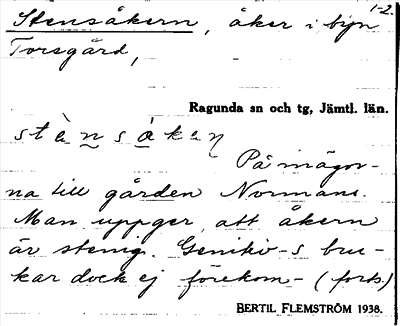 1-2.
Stensåkern, åker i byn
Torsgård,
Ragunda sn och tg, Jämtl. län.
stè̀nsåkeṇ
På mägor-
na till gården Normans.
Man uppger, att åkern
är stenig. Genitiv-s bru-
kar dock ej förekom- (forts.)
BERTIL FLEMSTRÖM 1938.